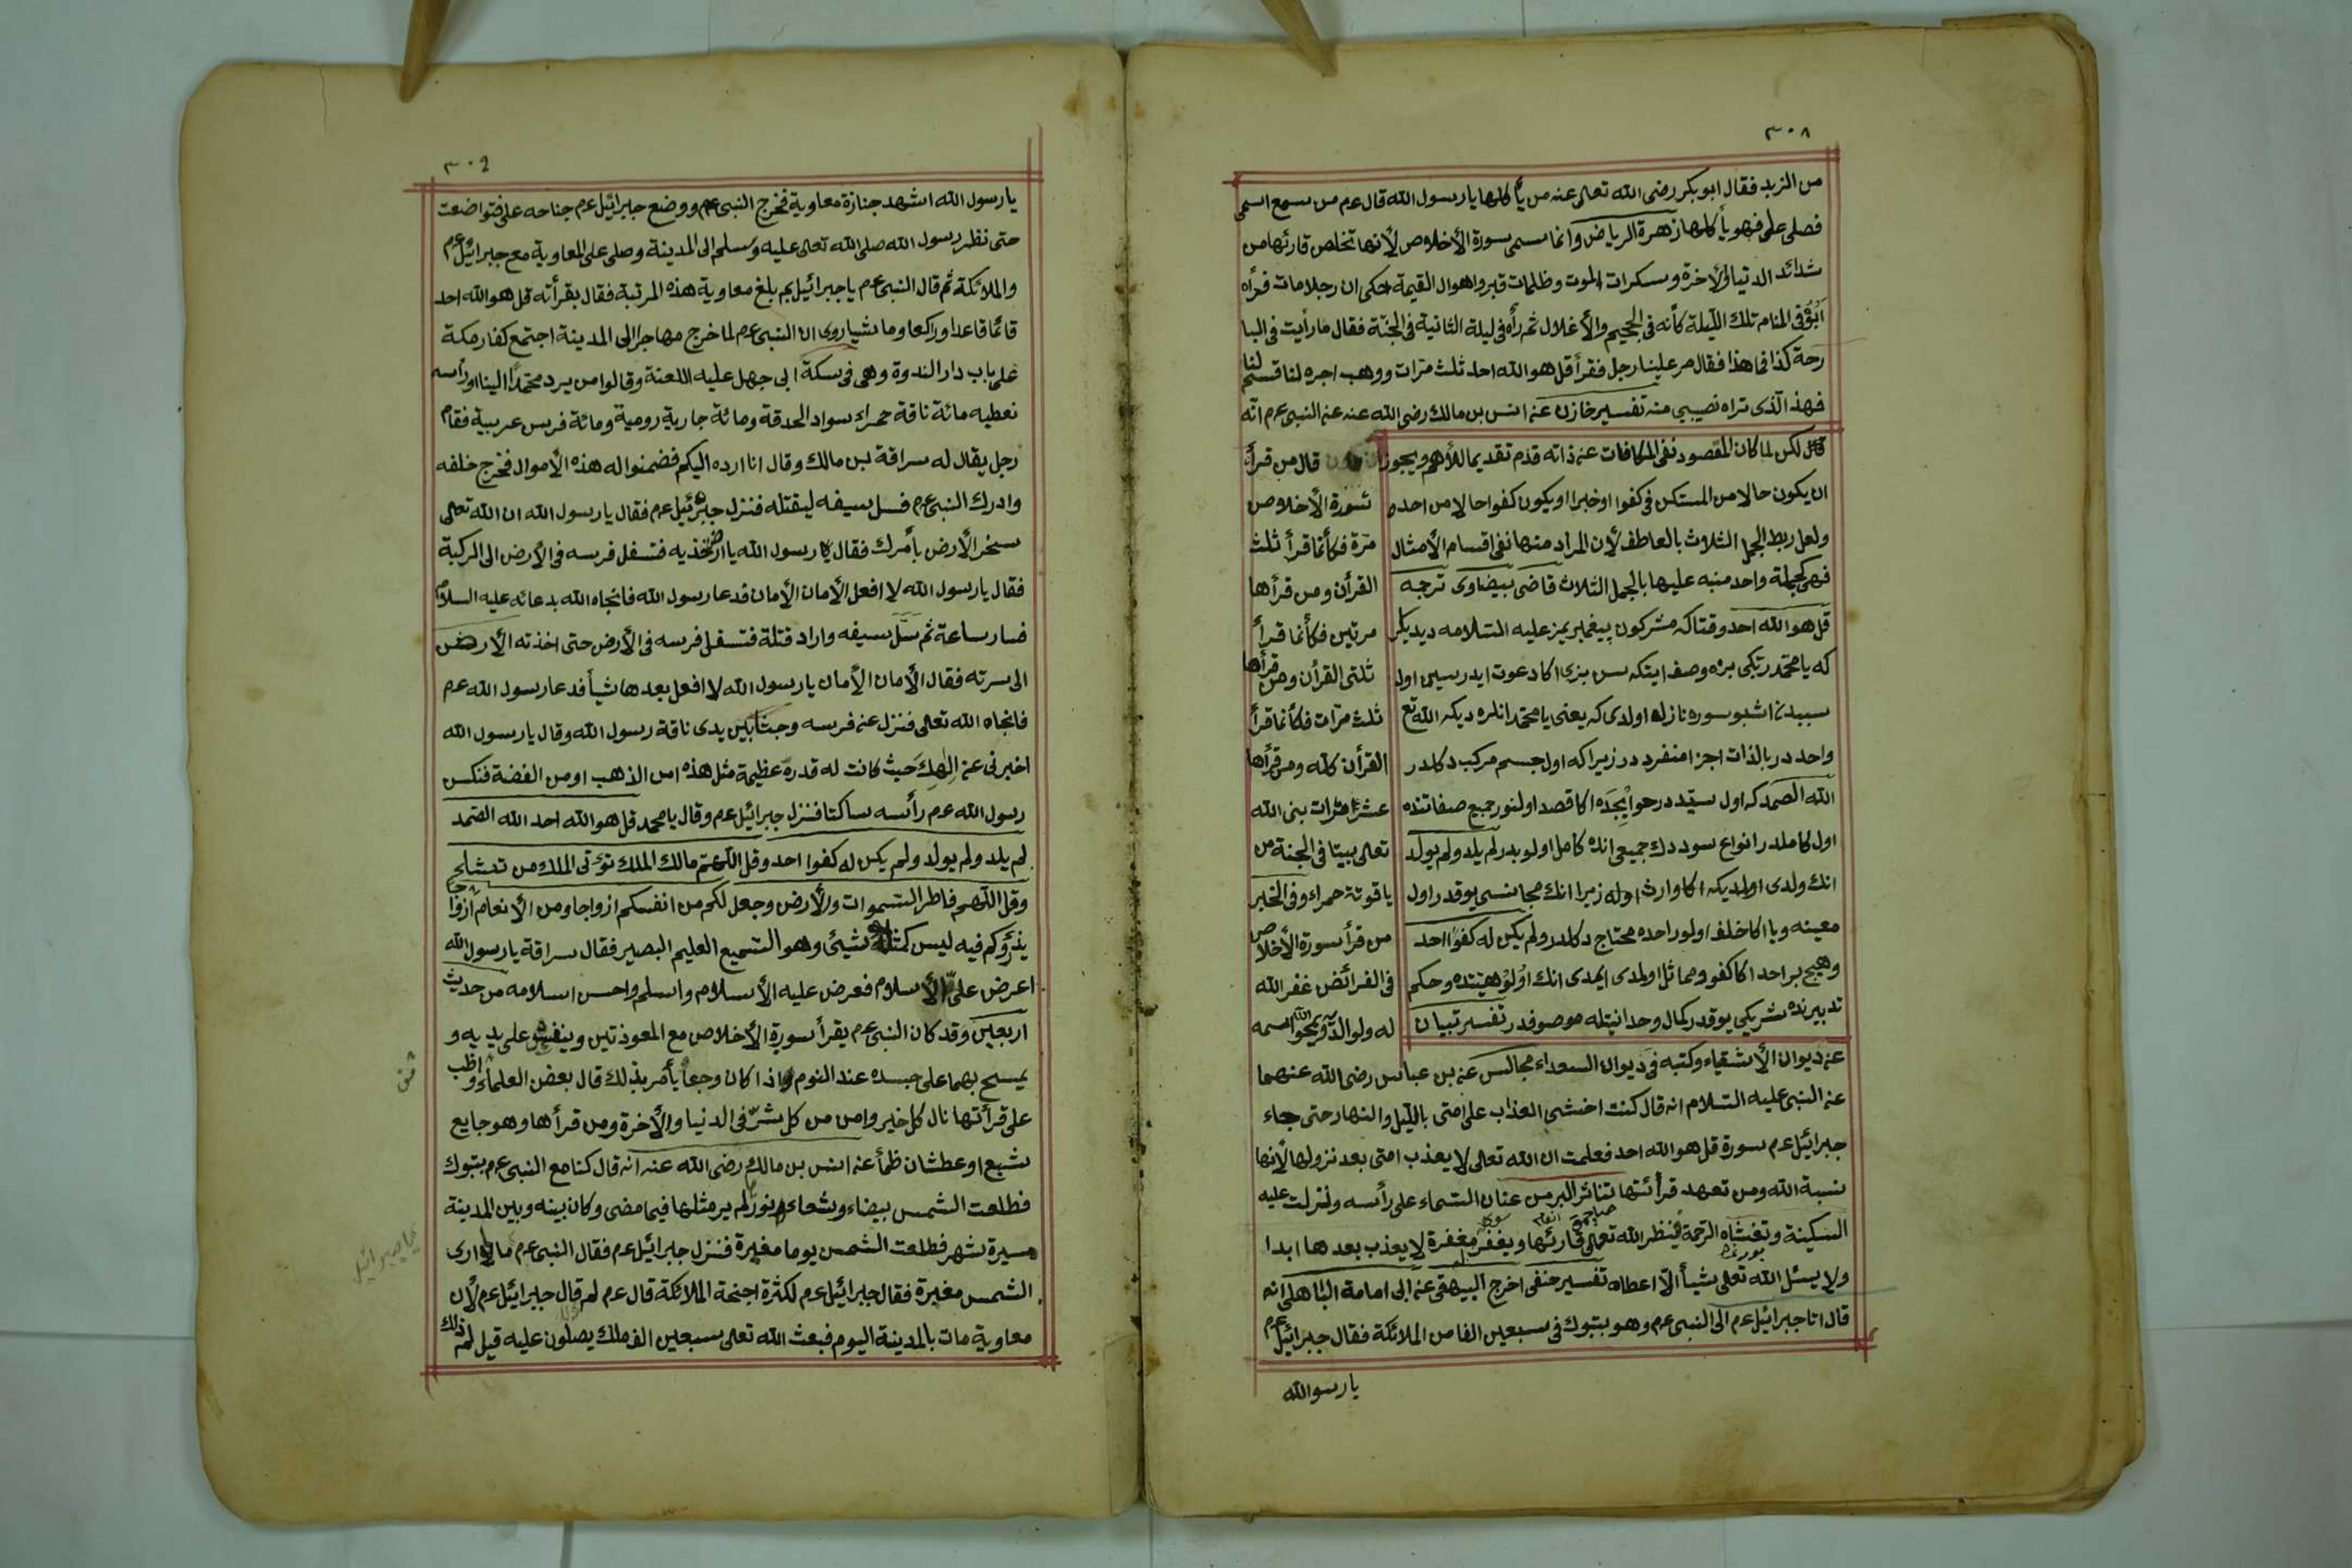 ٣٠٨
من الزبد فقال ابو بكر رضى الله تعالى عنه من يأكلها يا رسول الله قال عم من سمع اسمى
فصلى على فهو يأكلها زهرة الرياض وانما سمى سورة الأخلاص لأنها تخلص قارئها من
شدائد الدنيا والأخرة وسكرات الموت وظلمات قبر واهوال القيمة حكى ان رجلا مات فرأه
ابوه فى المنام تلك الليلة كأنه فى الجحيم والأغلال ثم رأه فى ليلة الثانية فى الجنة فقال ما رأيت فى البا
رحة كذا فما هذا فقال مر علينا رجل فقرأ قل هو الله احد ثلث مرات ووهب اجره لنا قسم لنا
فهذ الذى تراه نصيبى منه تفسير خازن عن انس بن مالك رضى الله عنه عن النبى عم انه
لكن لما كان المقصود نفى المكافات عن ذاته قدم تقديما للأهم ويجوز
ان يكون حالا من المستكن فى كفوا او خبرا او يكون كفوا حالا من احد
ولعل ربط الجمل الثلاث بالعاطف لأن المراد منها نفى اقسام الأمثال
فهى كجملة واحد منبه عليها بالجمل الثلاث قاضى بيضاوى ترجمه
قل هو الله احد وقتاكه مشركون پيغمبريمز عليه السلامه ديديلر
كه يا محمد ربكى بزه وصف ايتكه سن بزى اكا دعوت ايدرسين اول
سببدن اشبو سوره نازله اولدى كه يعنى يا محمد انلره ديكه الله تع
واحد در بالذات اجزا منفرد در زيرا كه اول جسم مركب دكلدر
الله الصمد كه اول سيد در حوايجده اكا قصد اولنور جميع صفاتنده
اول كاملدر انواع سوددك جميعى انده كامل اولوبدر لم يلد ولم يولد
انك ولدى اولمديكه اكا وارث اوله زيرا انك مجانسى يوقدر اول
معينه ويا اكا خلف اولور احده محتاج دكلدر ولم يكن له كفوا احد
وهيچ بر احد اكا كفو ومماثل اولمدى ايمدى انك اولوهيتنده وحكم
تدبيرنده شريكى يوقدر كمال وحدانيتله موصوفدر تفسير تبيان
قال من قرأ
سورة الأخلاص
مرة فكأنما قرأ ثلث
القرأن ومن قرأها
مرتين فكأنما قرأ
ثلثى القرأن ومن قرأها
ثلث مرات فكأنما قرأ
القرأن كله ومن قرأها
عشر مرات بنى الله
تعالى بيتا فى الجنة من
ياقوتة حمراء وفى الخبر
من قرأ سورة الأخلاص
فى الفرائض غفر الله
له ولوالديه ويمحو الله اسمه
عن ديوان الأشقياء وكتبه فى ديوان السعداء مجالس عن بن عباس رضى الله عنهما
عن النبى عليه السلام انه قال كنت اخشى العذاب على امتى بالليل والنهار حتى جاء
جبرائيل عم سورة قل هو الله احد فعلمت ان الله تعالى لا يعذب امتى بعد نزولها لأنها
نسبة الله ومن تعهد قرائتها تناثر البر من عنان السماء على رأسه ونزلت عليه
السكينة وتغشاه الرحمة فينظر الله تعالى قارئها ويغفر مغفرة لا يعذب بعدها ابدا
ولا يسئل الله تعالى شيأ الا اعطاه تفسير حنفى اخرج البيهقى عن ابى امامة الباهلى انه
قال اتا جبرائيل عم الى النبى عم وهو بتبوك فى سبعين الفا من الملائكة فقال جبرائيل عم
يا رسوالله
٣٠٩
يا رسول الله اشهد جنازة معاوية فخرج النبى عم ووضع جبرائيل عم جناحه على فتواضعت
حتى نظر رسول الله صلى الله تعالى عليه وسلم الى المدينة وصلى على المعاوية مع جبرائيل عم
والملائكة ثم قال النبى عم يا جبرائيل بم بلغ معاوية هذه المرتبة فقال بقرأته قل هو الله احد
قائما قاعدا وراكعا وماشيا روى ان النبى عم لما خرج مهاجرا الى المدينة اجتمع كفار مكة
على باب دار الندوة وهى فى سكة ابى جهل عليه اللعنة وقالوا من يرد محمدا الينا او رأسه
نعطيه مائة ناقة حمراء سواد الحدقة ومائة جارية رومية ومائة فرس عربية فقام
رجل يقال له سراقة بن مالك وقال انا ارده اليكم فضمنوا له هذه الأموال فخرج خلفه
وادرك النبى عم فسل سيفه ليقتله فنزل جبرئيل عم فقال يا رسول الله ان الله تعالى
سخر الأرض بأمرك فقال رسول الله يا ارض خذيه فتسفل فرسه فى الأرض الى الركبة
فقال يا رسول الله لا افعل الأمان الأمان فدعا رسول الله فانجاه الله بدعائه عليه السلام
فسار ساعة ثم سل سيفه واراد قتلة فتسفل فرسه فى الأرض حتى اخذته الأرض
الى سرته فقال الأمان الأمان يا رسول الله لا افعل بعدها شيأ فدعا رسول الله عم
فانجاه الله تعالى فنزل عن فرسه وجثا بين يدى ناقة رسول الله وقال يا رسول الله
اخبرنى عن الهك حيث كانت له قدره عظيمة مثل هذه امن الذهب او من الفضة فنكس
رسول الله عم رأسه ساكتا فنزل جبرائيل عم وقال يا محمد قل هو الله احد الله الصمد
لم يلد ولم يولد ولم يكن له كفوا احد وقل اللهم مالك الملك تؤتى الملك من تشاء
وقل اللهم فاطر السموات والأرض وجعل لكم من انفسكم ازواجا ومن الأنعام ازواجا
يذرؤكم فيه ليس كمثله شيئ وهو السميع العليم البصير فقال سراقة يا رسول الله
اعرض على الأسلام فعرض عليه الأسلام واسلم واحسن اسلامه من حديث
اربعين وقد كان النبى عم يقرأ سورة الأخلاص مع المعوذتين وينفث على يديه و
يمسح بهما على جسده عند النوم واذا كان وجعا يأمر بذلك قال بعض العلماء واظب
على قرأتها نال كل خير وامن من كل شر فى الدنيا والأخرة ومن قرأها وهو جايع
شبع او عطشان ظمأ عن انس بن مالك رضى الله عنه انه قال كنا مع النبى عم بتبوك
فطلعت الشمس بيضاء وشعاء ونور لم ير مثلها فيما مضى وكان بينه وبين المدينة
مسيرة شهر فطلعت الشمس يوما مغبرة فنزل جبرائيل عم فقال النبى عم ما لى ارى
الشمس مغبرة فقال جبرائيل عم لكثرة اجنحة الملائكة قال عم لم قال جبرائيل عم لأن
معاوية مات بالمدينة اليوم فبعث الله تعالى سبعين الف ملك يصلون عليه قيل لم ذلك